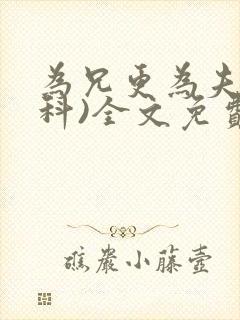 為兄更為夫
科)全文免費
礁巖小藤壺